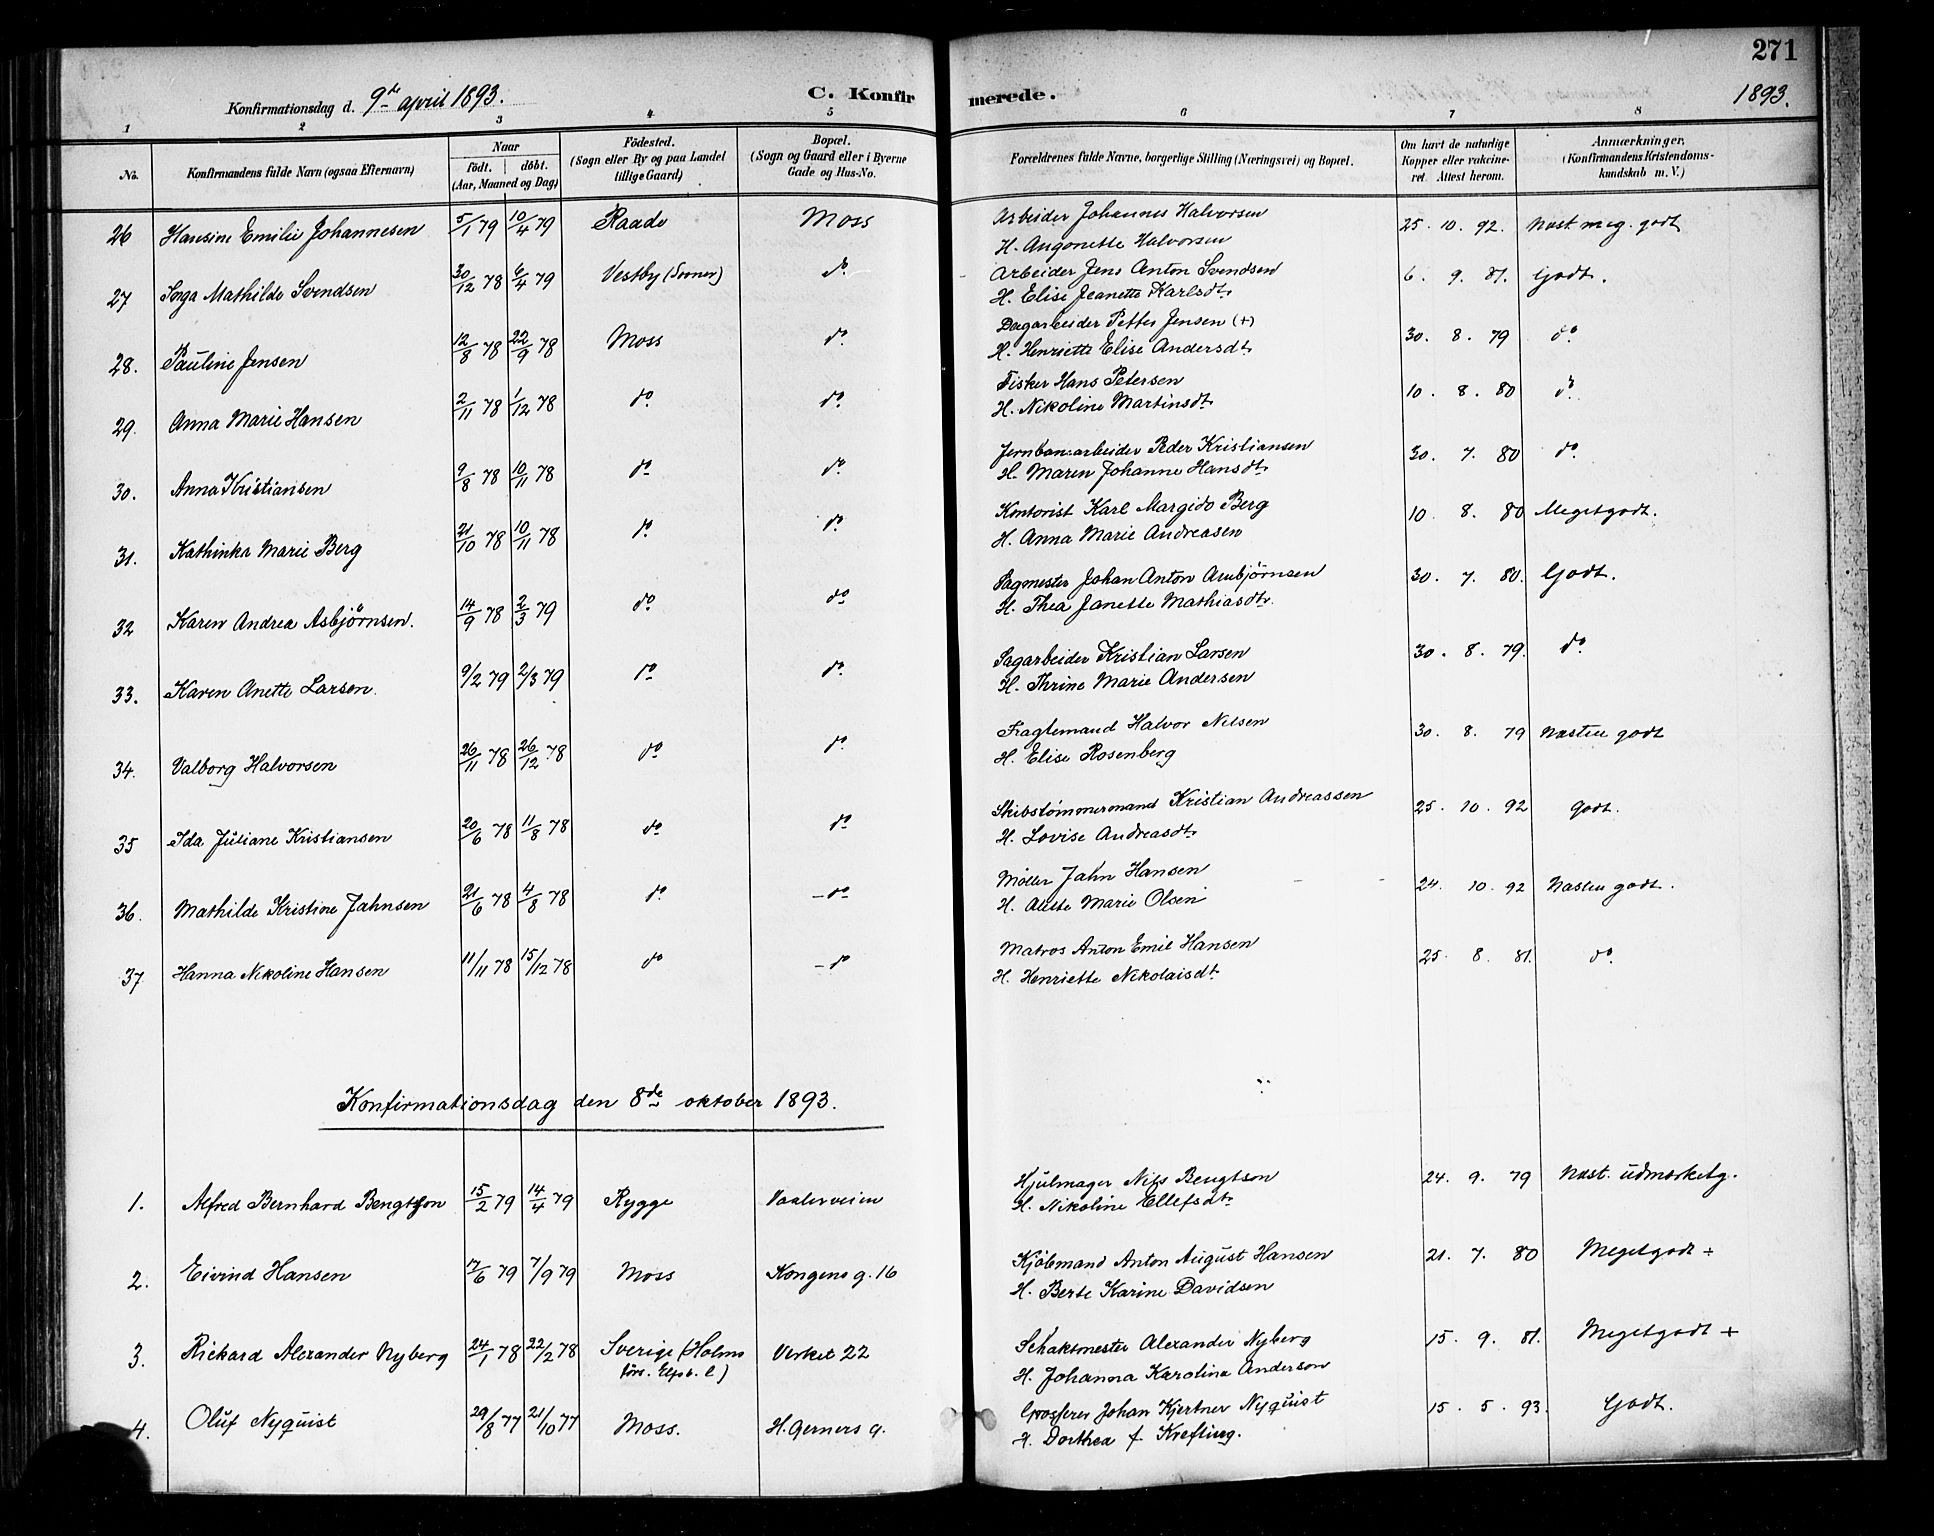 271
Konfirmationsdag d. 9de april 1893. C. Konfirmerede. 1893.
1 2 3 4 5 6 7 8
No. Konfirmandens fulde Navn (ogsaa Efternavn) Naar født. døbt. (Aar, Maaned og Dag) Fødested. (Sogn eller By og paa Landet tillige Gaard) Bopæl. (Sogn og Gaard eller i Byerne Gade og Hus-No. Forældrenes fulde Navne, borgerlige Stilling (Næringsvei) og Bopæl. Om havt de naturlige Kopper eller vakcineret. Attest herom. Anmærkninger, (Konfirmandens Kristendomskundskab m. V.)
26 Hansine Emilie Johannesen 5/1 79 10/4 79 Raade Moss Arbeider Johannes Halvorsen 25. 10. 92. Næst meg. godt
H. Angonette Halvorsen
27 Inga Mathilde Svendsen 30/12 78 6/4 79 Vestby (Soner) do Arbeider Jens Anton Svendsen 6. 9. 81. Godt.
H. Elise Jeanette Karlsdtr
28. Pauline Jensen 12/8 78 22/9 78 Moss do Dagarbeider Petter Jensen (+) 30. 8. 79 do
H. Henriette Elise Andersdtr
29. Anna Marie Hansen 2/11 78 1/12 78 do. do. Fisker Hans Petersen 10. 8. 80 do
H. Nikoline Martinsdtr
30. Anna Kristiansen 9/8 78 10/11 78 do do Jernbanearbeider Peder Kristiansen 30. 7. 80 do.
H. Maren Johanne Hansdtr
31. Kathinka Marie Berg 21/10 78 10/11 78 do do Kontorist Karl Margido Berg 10. 8. 80 Meget godt.
H. Anna Marie Andreasen
32 Karen Andrea Asbjørnsen. 14/9 78 2/3 79 do do Sagmester Johan Anton Asnbjørnsen 30. 7. 80. Godt.
H. Thea Janette Mathiasdtr.
33. Karen Anette Larsen. 9/2 79 2/3 79 do do. Sagarbeider Kristian Larsen 30. 8. 79. do.
H. Thrine Marie Andersen
34. Valborg Halvorsen 26/11 78 26/12 78 do do. Fragtemand Halvor Nilsen 30. 8. 79 Næsten godt
H. Elise Rosenberg
35 Ida Juliane Kristiansen 20/6 78 11/8 78 do do Skibstømmermand Kristian Andreassen 25. 10. 92 godt.
H. Lovise Andreasdtr
36. Mathilde Kristine Jahnsen 21/6 78 4/8 78 do. do Møller Jahn Hansen 24. 10. 92 Næsten godt.
H. Marie Olsen
37. Hanna Nikoline Hansen 11/11 78 15/12 78 do do Matros Anton Emil Hansen 25. 8. 81. do.
H. Henriette Nikolaisdtr
Konfirmationsdag den 8de oktober 1893.
1. Alfred Bernhard Bengtson 15/2 79 14/4 79 Rygge Vaalerveien Hjulmager Nils Bengtson 24. 9. 79 Næst. udmærketg.
H. Nikoline Ellefsdtr
2. Eivind Hansen 17/6 79 7/9 79 Moss Kongens g. 16 Kjøbmand Anton August Hansen 21. 7. 80 Meget godt ÷
H. Berte Karine Davidsen
3. Rickard Alexander Nyberg 24/1 78 22/2 78 Sverige (Holms Verket 22 Schaktmester Alexander Nyberg 15. 9. 81. Meget godt +
förs. Elfsb. l) H. Johanna Karolina Anderson
4. Oluf Nyquist 29/8 77 21/10 77 Moss. H. Gerners g. Grosserer Johan Kjertner Nyquist 15. 5. 93. Godt.
H. Dorthea f. Krefting.